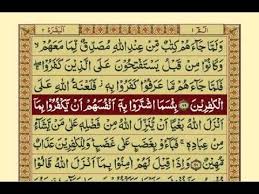 البقرة ٢
وَلَمَّا جَآءَهُمْ كِتٰبٌ مِّنْ عِنْدِ اللّٰهِ مُصَدِّقٌ لِّمَا مَعَهُمْ
وَكَانُوْا مِنْ قَبْلُ يَسْتَفْتِحُوْنَ عَلَى الَّذِيْنَ كَفَرُوْا
فَلَمَّا جَآءَهُمْ مَّا عَرَفُوْا كَفَرُوْا بِهٖ فَلَعْنَةُ اللّٰهِ عَلَى
الْكٰفِرِيْنَ بِئْسَمَا اشْتَرَوْا بِهٖۤ اَنْفُسَهُمْ اَنْ يَّكْفُرُوْا بِمَاۤ
اَنْزَلَ اللّٰهُ بَغْيًا اَنْ يُّنَزِّلَ اللّٰهُ مِنْ فَضْلِهٖ عَلٰى مَنْ يَّشَآءُ
مِنْ عِبَادِهٖ فَبَآءُوْ بِغَضَبٍ عَلٰى غَضَبٍ وَلِلْكٰفِرِيْنَ عَذَابٌ
مُّهِيْنٌ وَاِذَا قِيْلَ لَهُمْ اٰمِنُوْا بِمَاۤ اَنْزَلَ اللّٰهُ قَالُوْا